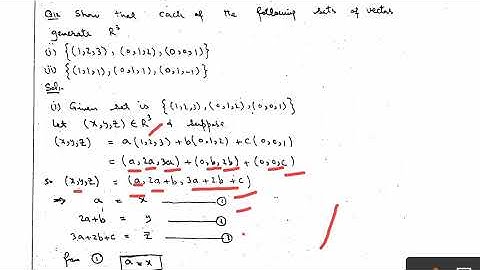 Qus Show that each of the following sets of vector
generate R³
(i) {(1,2,3), (0,1,2), (0,0,1)}
(ii) {(1,1,1), (0,1,1), (0,1,-1)}
Sol:-
(i) Given set is {(1,2,3), (0,1,2), (0,0,1)}
Let (x,y,z) ∈ R³ & suppose
(x,y,z) = a(1,2,3) + b(0,1,2) + c(0,0,1)
= (a, 2a, 3a) + (0, b, 2b) + (0,0,c)
so (x,y,z) = (a, 2a+b, 3a+2b+c)
⇒ a = x —— ①
2a+b = y —— ②
3a+2b+c = z —— ③
from ① a = x